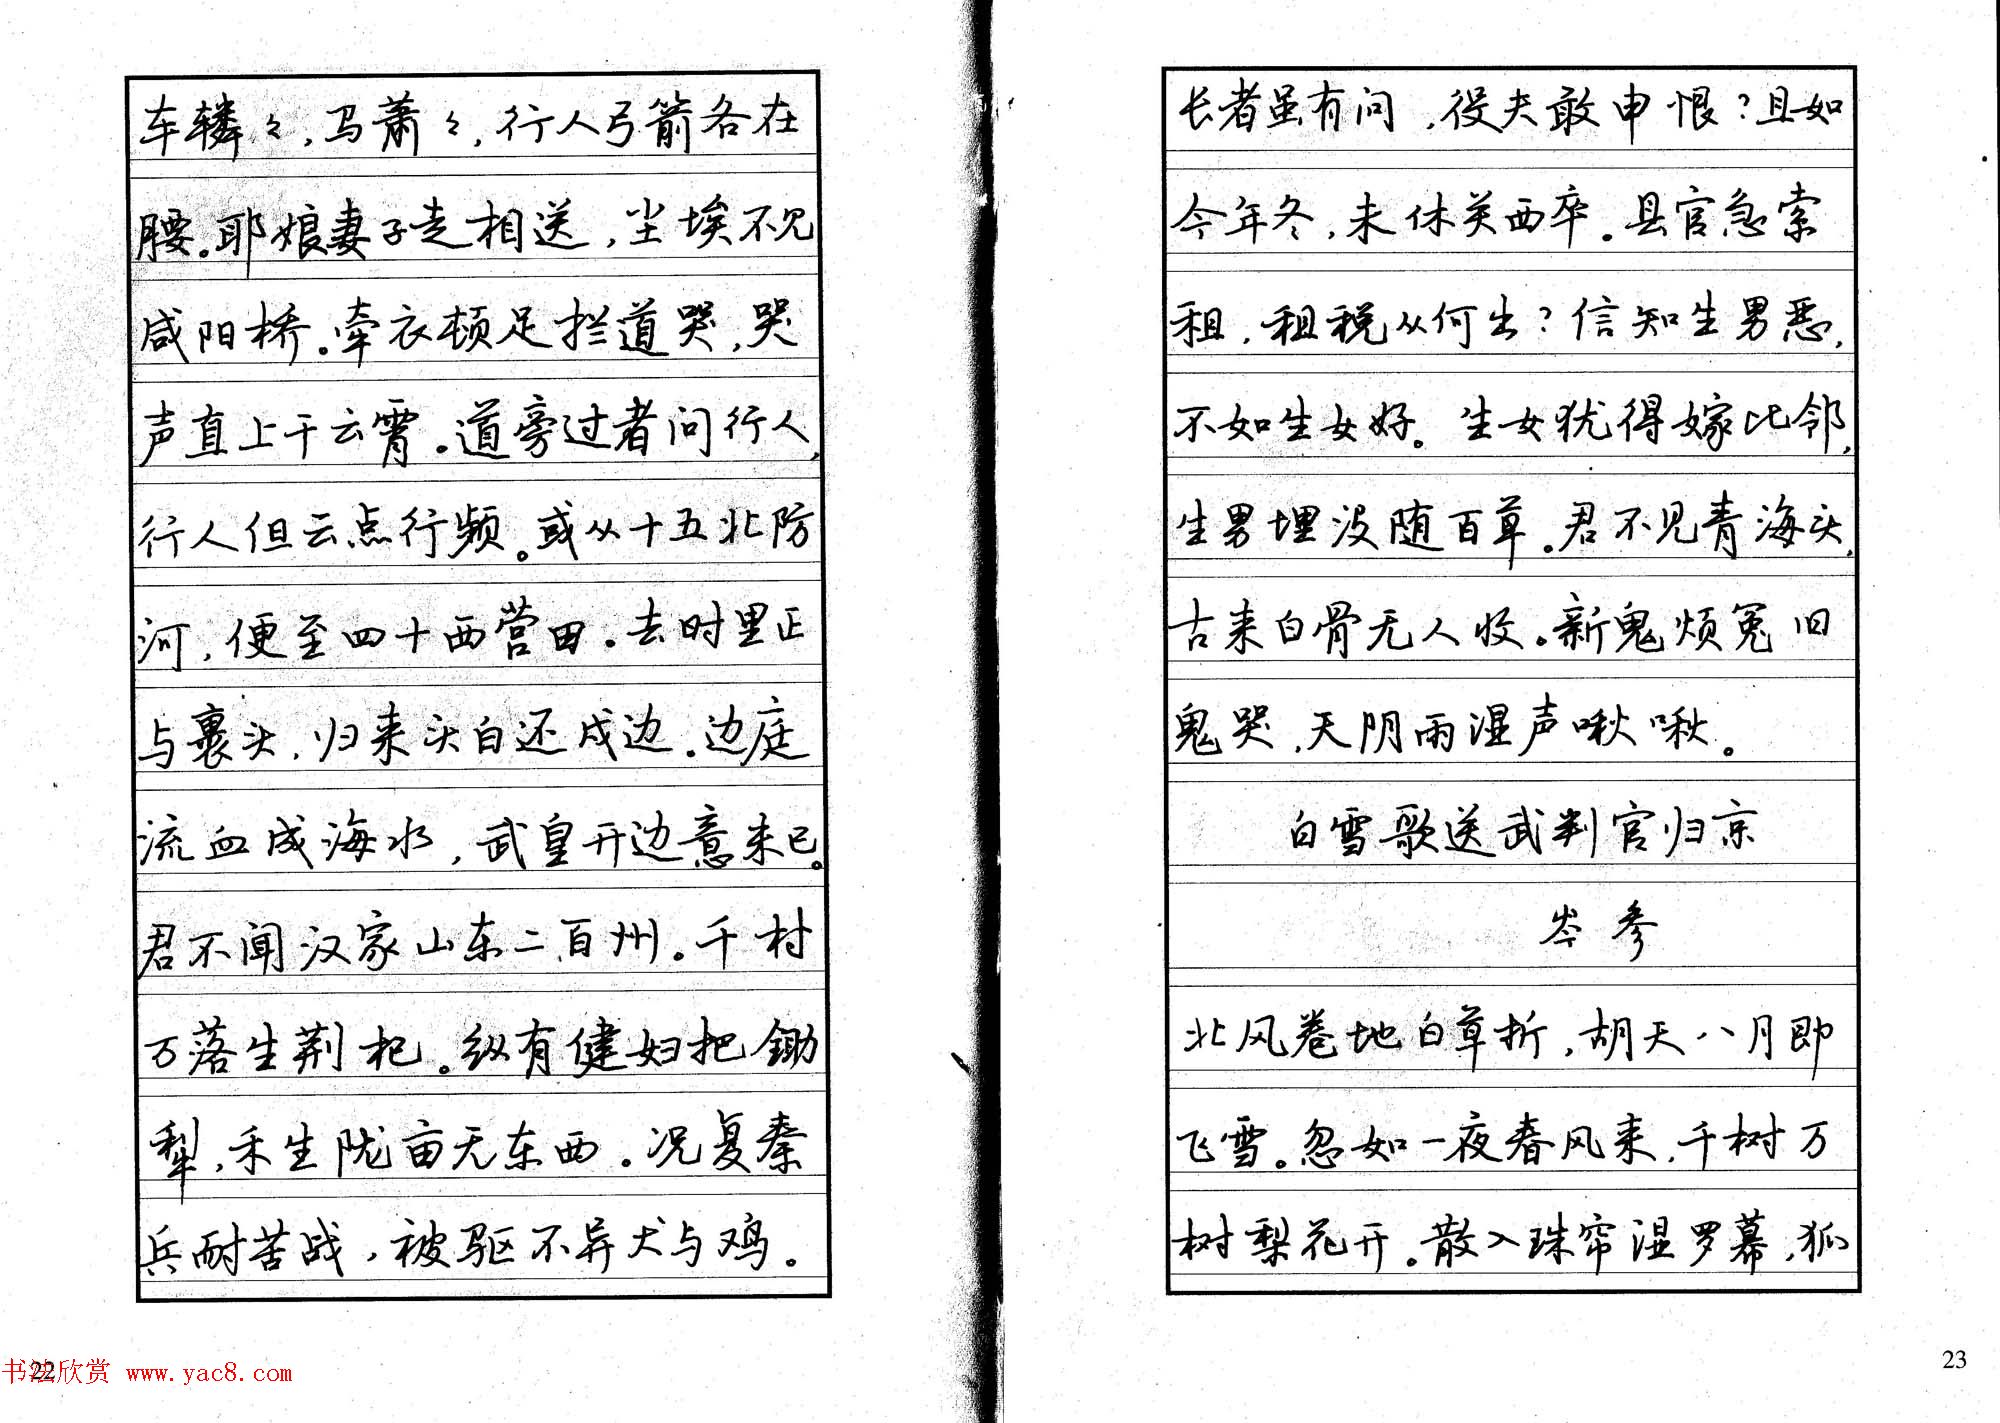 车辚々,马萧々,行人弓箭各在
腰。耶娘妻子走相送,尘埃不见
咸阳桥。牵衣顿足拦道哭,哭
声直上干云霄。道旁过者问行人,
行人但云点行频。或从十五北防
河,便至四十西营田。去时里正
与裹头,归来头白还戍边。边庭
流血成海水,武皇开边意未已。
君不闻汉家山东二百州。千村
万落生荆杞。纵有健妇把锄
犁,禾生陇亩无东西。况复秦
兵耐苦战,被驱不异犬与鸡。
22
书法欣赏 www.yac8.com
长者虽有问,役夫敢申恨?且如
今年冬,未休关西卒。县官急索
租,租税从何出?信知生男恶,
不如生女好。生女犹得嫁比邻,
生男埋没随百草。君不见青海头,
古来白骨无人收。新鬼烦冤旧
鬼哭,天阴雨湿声啾啾。
白雪歌送武判官归京
岑参
北风卷地白草折,胡天八月即
飞雪。忽如一夜春风来,千树万
树梨花开。散入珠帘湿罗幕,狐
23